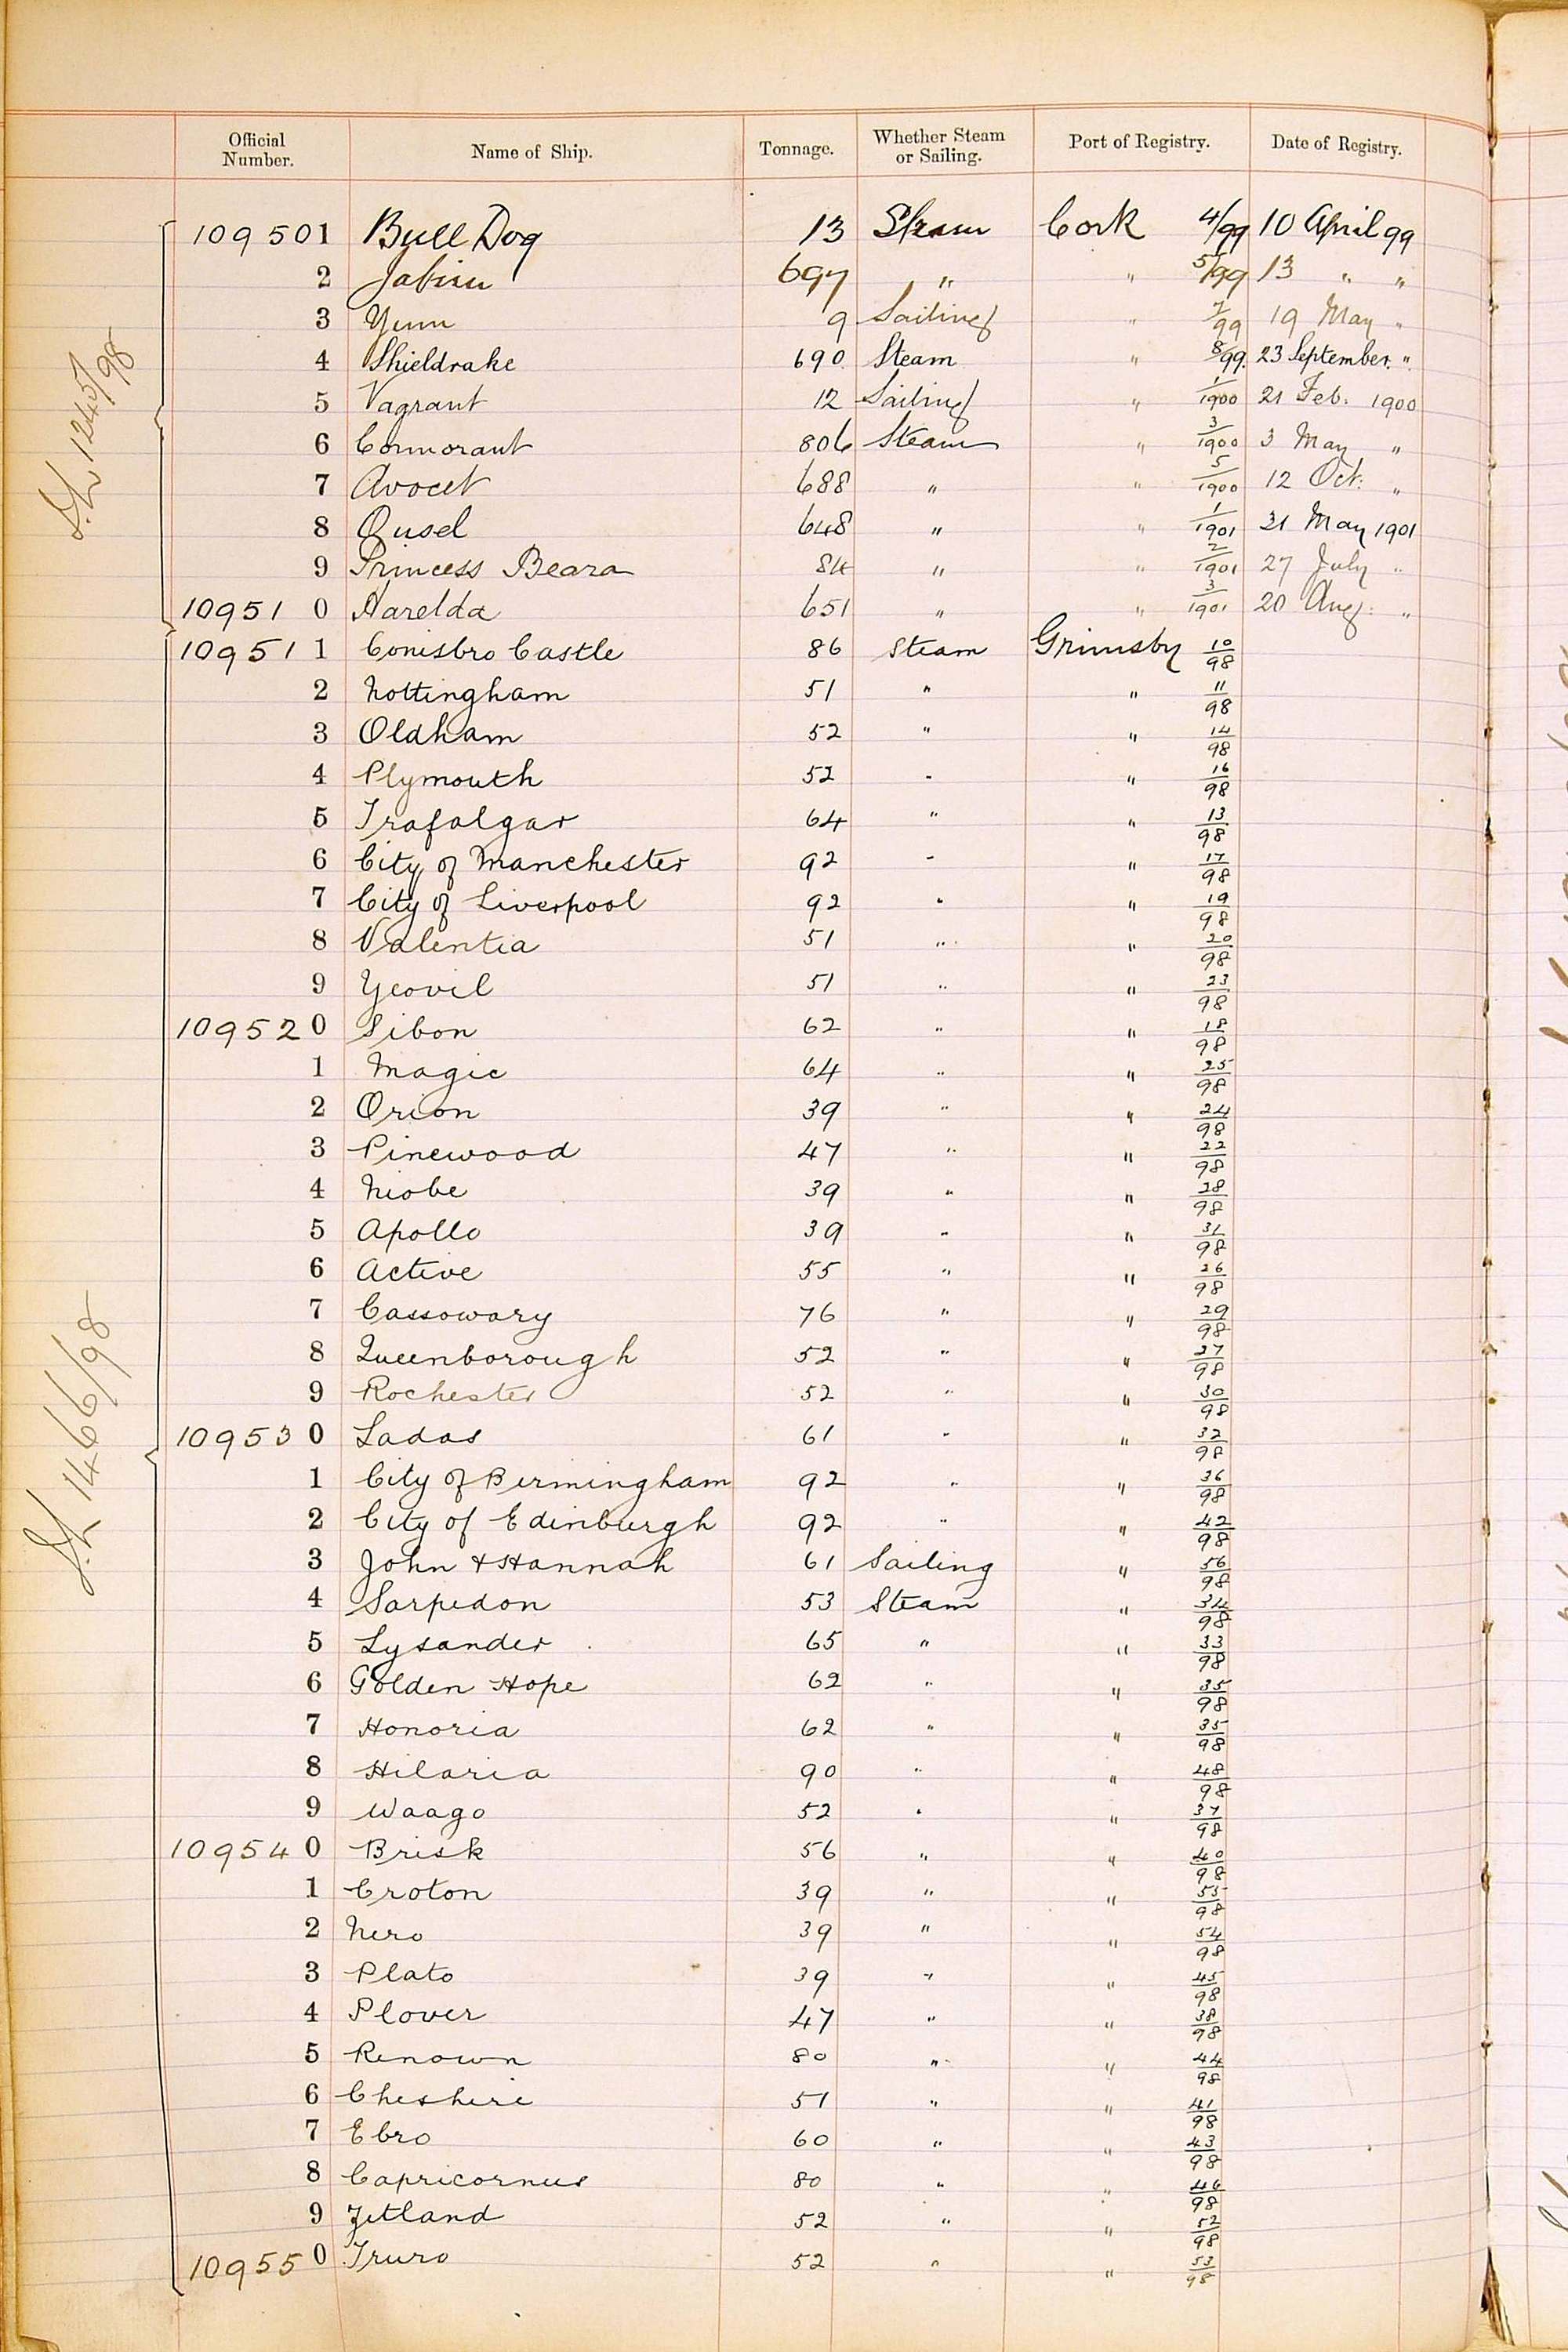 Official Number. Name of Ship. Tonnage. Whether Steam or Sailing. Port of Registry. Date of Registry.
109501 Bull Dog 13 Steam Cork 4/99 10 April 99
2 Jabiru 697 " " 5/99 13 " "
3 9 Sailing " 7/99 19 May "
4 Shieldrake 690 Steam " 8/99 23 September "
5 Vagrant 12 Sailing " 1/1900 21 Feb: 1900
6 Cormorant 806 Steam " 3/1900 3 May "
7 Avocet 688 " " 5/1900 12 Oct: "
8 Ousel 648 " " 1/1901 31 May 1901
9 Princess Beara 84 " " 2/1901 27 July "
109510 Harelda 651 " " 3/1901 20 Aug: "
109511 Conisbro Castle 86 Steam Grimsby 10/98
2 Nottingham 51 " " 11/98
3 Oldham 52 " " 14/98
4 Plymouth 52 " " 16/98
5 Trafalgar 64 " " 13/98
6 City of Manchester 92 " " 17/98
7 City of Liverpool 92 " " 19/98
8 Valentia 51 " " 20/98
9 Yeovil 51 " " 23/98
109520 Sibon 62 " " 18/98
1 Magic 64 " " 25/98
2 Orion 39 " " 24/98
3 Pinewood 47 " " 22/98
4 Niobe 39 " " 28/98
5 Apollo 39 " " 31/98
6 Active 55 " " 26/98
7 Cassowary 76 " " 29/98
8 Queenborough 52 " " 27/98
9 Rochester 52 " " 30/98
109530 Ladas 61 " " 32/98
1 City of Birmingham 92 " " 36/98
2 City of Edinburgh 92 " " 42/98
3 John & Hannah 61 Sailing " 56/98
4 Sarpedon 53 Steam " 34/98
5 Lysander 65 " " 33/98
6 Golden Hope 62 " " 35/98
7 Honoria 62 " " 35/98
8 Hilaria 90 " " 48/98
9 Waago 52 " " 37/98
109540 Brisk 56 " " 40/98
1 Croton 39 " " 55/98
2 Nero 39 " " 54/98
3 Plato 39 " " 45/98
4 Plover 47 " " 38/98
5 Renown 80 " " 44/98
6 Cheshire 51 " " 41/98
7 Ebro 60 " " 43/98
8 Capricornus 80 " " 46/98
9 Zetland 52 " " 52/98
109550 Truro 52 " " 53/98
12457/98
1466/98